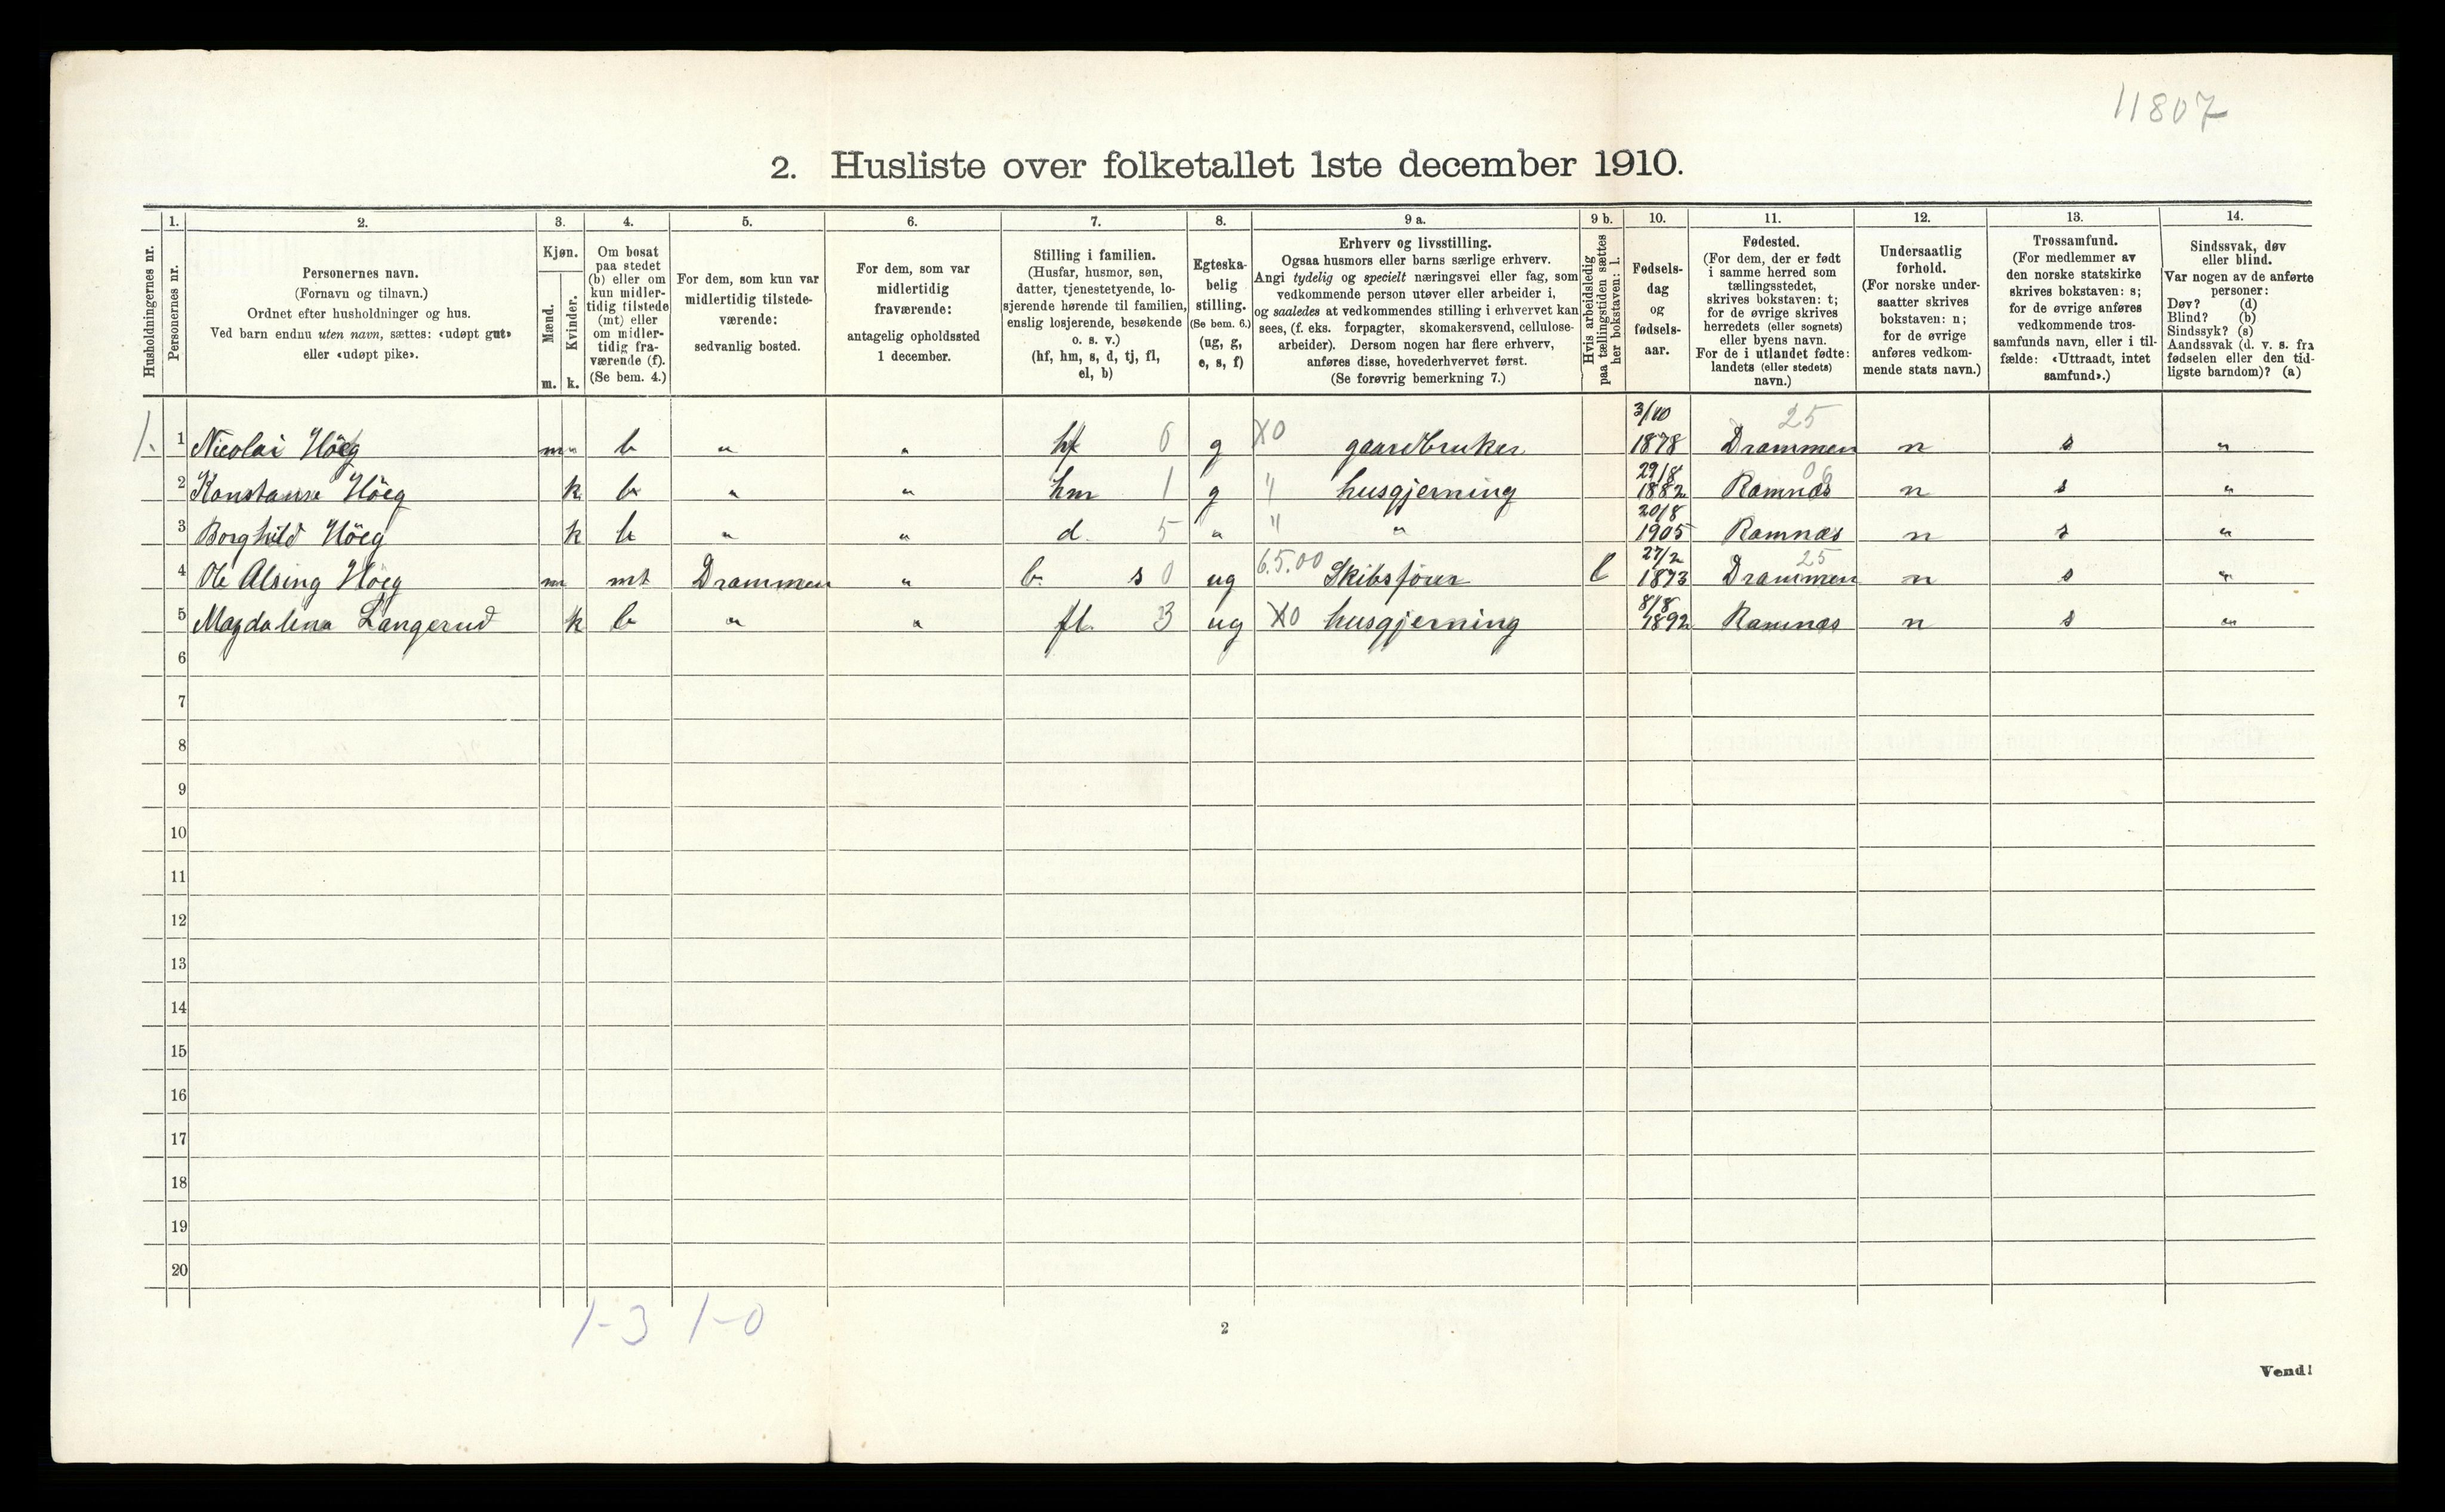 11807
2. Husliste over folketallet 1ste december 1910.
Husholdningernes nr.
1.
Personernes nr.
2.
Personernes navn.
(Fornavn og tilnavn.)
Ordnet efter husholdninger og hus.
Ved barn endnu uten navn, sættes: «udøpt gut»
eller «udøpt pike».
3.
Kjøn.
Mænd.
Kvinder.
m. k.
4.
Om bosat
paa stedet
(b) eller om
kun midler-
tidig tilstede
(mt) eller
om midler-
tidig fra-
værende (f).
(Se bem. 4.)
5.
For dem, som kun var
midlertidig tilstede-
værende:
sedvanlig bosted.
6.
For dem, som var
midlertidig
fraværende:
antagelig opholdssted
1 december.
7.
Stilling i familien.
(Husfar, husmor, søn,
datter, tjenestetyende, lo-
sjerende hørende til familien,
enslig losjerende, besøkende
o. s. v.)
(hf, hm, s, d, tj, fl,
el, b)
8.
Egteska-
belig
stilling.
(Se bem. 6.)
(ug, g,
e, s, f)
9 a.
Erhverv og livsstilling.
Ogsaa husmors eller barns særlige erhverv.
Angi tydelig og specielt næringsvei eller fag, som
vedkommende person utøver eller arbeider i,
og saaledes at vedkommendes stilling i erhvervet kan
sees, (f. eks. forpagter, skomakersvend, cellulose-
arbeider). Dersom nogen har flere erhverv,
anføres disse, hovederhvervet først.
(Se forøvrig bemerkning 7.)
9 b.
Hvis arbeidsledig
paa tællingstiden sættes
her bokstaven: l.
10.
Fødsels-
dag
og
fødsels-
aar.
11.
Fødested.
(For dem, der er født
i samme herred som
tællingsstedet,
skrives bokstaven: t;
for de øvrige skrives
herredets (eller sognets)
eller byens navn.
For de i utlandet fødte:
landets (eller stedets)
navn.)
12.
Undersaatlig
forhold.
(For norske under-
saatter skrives
bokstaven: n;
for de øvrige
anføres vedkom-
mende stats navn.)
13.
Trossamfund.
(For medlemmer av
den norske statskirke
skrives bokstaven: s;
for de øvrige anføres
vedkommende tros-
samfunds navn, eller i til-
fælde: «Uttraadt, intet
samfund».)
14.
Sindssvak, døv
eller blind.
Var nogen av de anførte
personer:
Døv? (d)
Blind? (b)
Sindssyk? (s)
Aandssvak (d. v. s. fra
fødselen eller den tid-
ligste barndom)? (a)
3/10 25
1. 1 Nicolai Höeg m " b " " hf 0 g X0 gaardbruker 1878 Drammen n s "
29/8 06
2 Konstanse Höeg k b " " hm 1 g " husgjerning 1882 Ramnæs n s "
20/8
3 Borghild Höeg k b " " d. 5 " " " 1905 Ramnæs n s "
27/2 25
4 Ole Alsing Höeg m mt Drammen " b. s 0 ug 6.5.00 Skibsfører l 1873 Drammen n s "
8/8
5 Magdalena Langerud k b " " fl. 3 ug X0 husgjerning 1892 Ramnæs n s "
6
7
8
9
10
11
12
13
14
15
16
17
18
19
20
1-3 1-0
2
Vend!